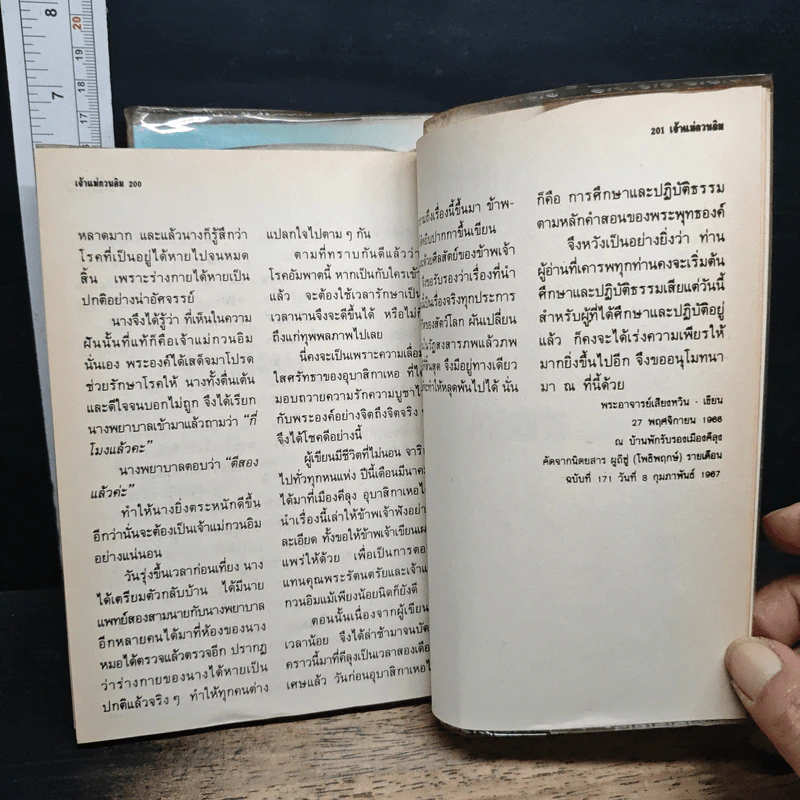 8
7
20
19
18
17
เจ้าแม่กวนอิม 200
หลาดมาก และแล้วนางก็รู้สึกว่า
โรคที่เป็นอยู่ได้หายไปจนหมด
สิ้น เพราะร่างกายได้หายเป็น
ปกติอย่างน่าอัศจรรย์
นางจึงได้รู้ว่า ที่เห็นในความ
ฝันนั้นที่แท้ก็คือเจ้าแม่กวนอิม
นั่นเอง พระองค์ได้เสด็จมาโปรด
ช่วยรักษาโรคให้ นางทั้งตื่นเต้น
และดีใจจนบอกไม่ถูก จึงได้เรียก
นางพยาบาลเข้ามาแล้วถามว่า "กี่
โมงแล้วคะ"
นางพยาบาลตอบว่า "ตีสอง
แล้วค่ะ"
ทำให้นางยิ่งตระหนักดีขึ้น
อีกว่านั่นจะต้องเป็นเจ้าแม่กวนอิม
อย่างแน่นอน
วันรุ่งขึ้นเวลาก่อนเที่ยง นาง
ได้เตรียมตัวกลับบ้าน ได้มีนาย
แพทย์สองสามนายกับนางพยาบาล
อีกหลายคนได้มาที่ห้องของนาง
หมอได้ตรวจแล้วตรวจอีก ปรากฏ
ว่าร่างกายของนางได้หายเป็น
ปกติแล้วจริง ๆ ทำให้ทุกคนต่าง
แปลกใจไปตาม ๆ กัน
ตามที่ทราบกันดีแล้วว่า
โรคอัมพาตนี้ หากเป็นกับใครเข้า
แล้ว จะต้องใช้เวลารักษาเป็น
เวลานานจึงจะดีขึ้นได้ หรือไม่ก็
ถึงแก่ทุพพลภาพไปเลย
นี่คงจะเป็นเพราะความเลื่อม
ใสศรัทธาของอุบาสิกาเหอ ที่ได้
มอบถวายความรักความบูชาให้
กับพระองค์อย่างจิตถึงจิตจริง ๆ
จึงได้โชคดีอย่างนี้
ผู้เขียนมีชีวิตที่ไม่นอน จาริก
ไปทั่วทุกหนแห่ง ปีนี้เดือนมีนาคม
ได้มาที่เมืองคีลุง อุบาสิกาเหอได้
นำเรื่องนี้เล่าให้ข้าพเจ้าฟังอย่าง
ละเอียด ทั้งขอให้ข้าพเจ้าเขียนเผย
แพร่ให้ด้วย เพื่อเป็นการตอบ
แทนคุณพระรัตนตรัยและเจ้าแม่
กวนอิมแม้เพียงน้อยนิดก็ยังดี
ตอนนั้นเนื่องจากผู้เขียนมี
เวลาน้อย จึงได้ล่าช้ามาจนบัด
คราวนี้มาที่คีลุงเป็นเวลาสองเดือน
เศษแล้ว วันก่อนอุบาสิกาเหอได้
201 เจ้าแม่กวนอิม
ความถึงเรื่องนี้ขึ้นมา ข้าพ-
หยิบปากกาขึ้นเขียน
ด้วยศีลสัตย์ของข้าพเจ้า
ขอรับรองว่าเรื่องที่นำ
เป็นเรื่องจริงทุกประการ
ของสัตว์โลก ผันเปลี่ยน
วัฏสงสารภพแล้วภพ
สิ้นสุด จึงมีอยู่ทางเดียว
จะทำให้หลุดพ้นไปได้ นั่น
ก็คือ การศึกษาและปฏิบัติธรรม
ตามหลักคำสอนของพระพุทธองค์
จึงหวังเป็นอย่างยิ่งว่า ท่าน
ผู้อ่านที่เคารพทุกท่านคงจะเริ่มต้น
ศึกษาและปฏิบัติธรรมเสียแต่วันนี้
สำหรับผู้ที่ได้ศึกษาและปฏิบัติอยู่
แล้ว ก็คงจะได้เร่งความเพียรให้
มากยิ่งขึ้นไปอีก จึงขออนุโมทนา
มา ณ ที่นี้ด้วย
พระอาจารย์เสียงหวิน - เขียน
27 พฤศจิกายน 1966
ณ บ้านพักรับรองเมืองคีลุง
คัดจากนิตยสาร ผูถีซู่ (โพธิพฤกษ์) รายเดือน
ฉบับที่ 171 วันที่ 8 กุมภาพันธ์ 1967